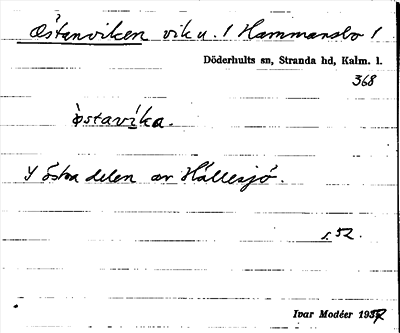 Östanviken vik u. 1 Hammarsbo 1
Döderhults sn, Stranda hd, Kalm. l.
368
östavika.
I östra delen av Hällesjö.
s. 52.
Ivar Modéer 1937